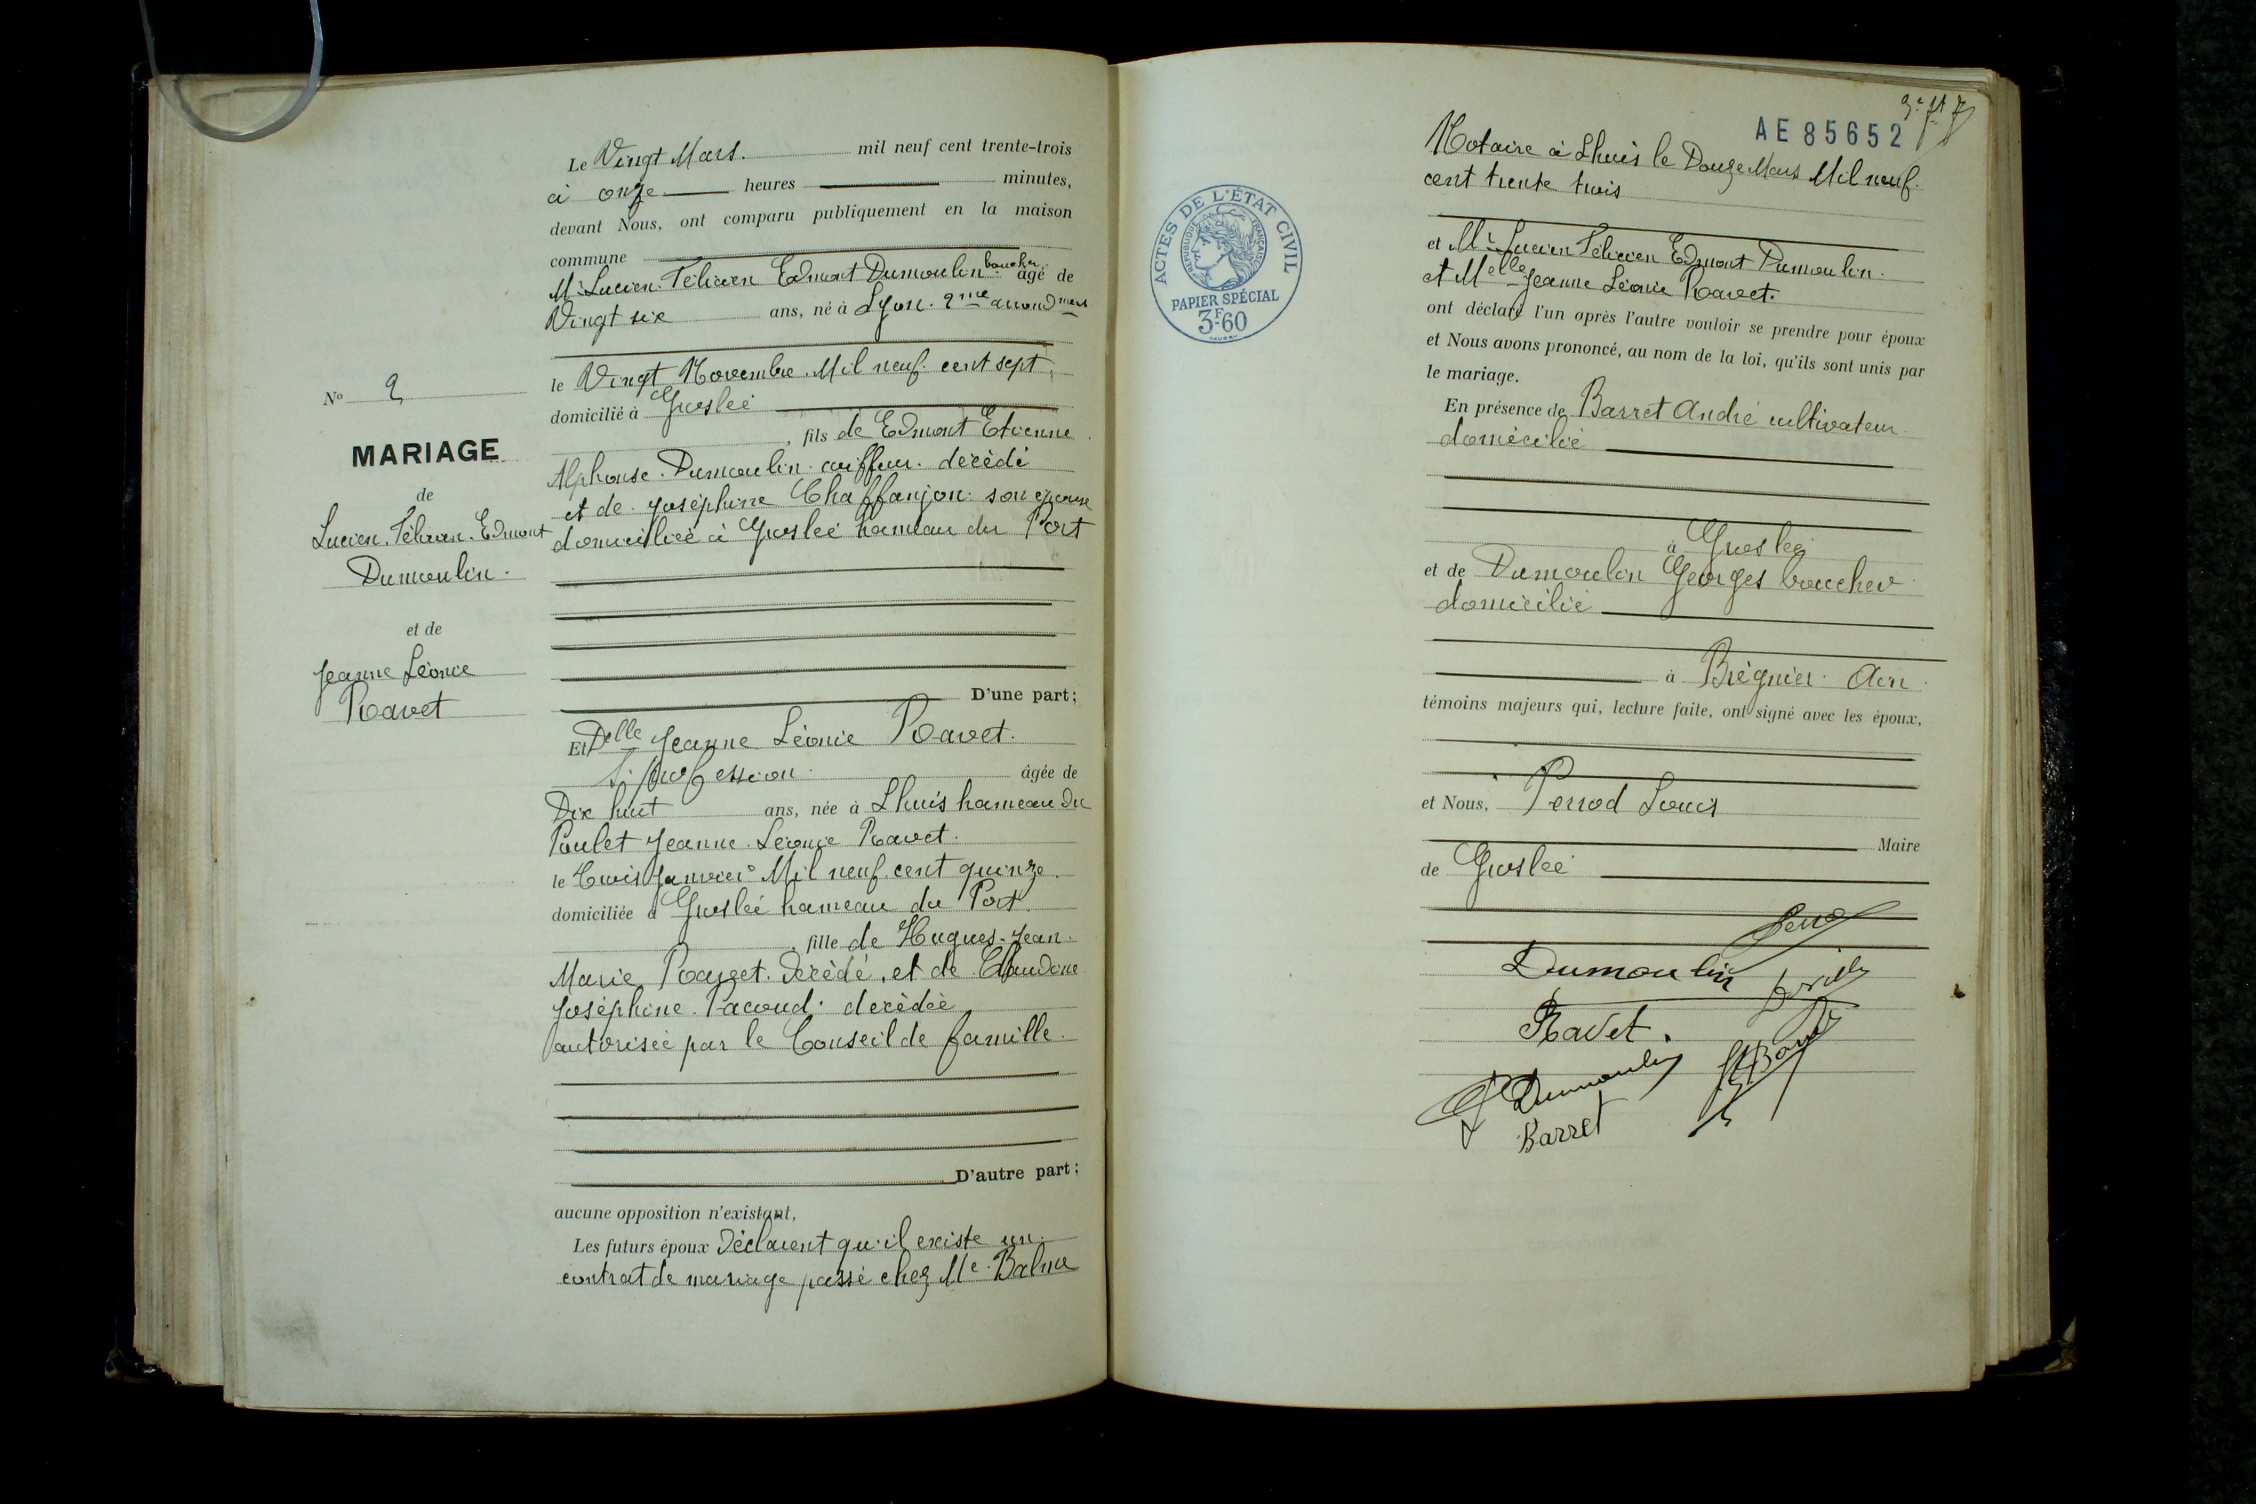 Le Vingt Mars. mil neuf cent trente-trois
à onze heures minutes,
devant Nous, ont comparu publiquement en la maison
commune
Mr Lucien Félicien Edmont Dumoulin boucher âgé de
Vingt six ans, né à Lyon. 2me arrondment
le Vingt Novembre Mil neuf cent sept
domicilié à Groslée
, fils de Edmont Etienne
Alphonse Dumoulin coiffeur décédé
et de Joséphine Chaffanjon son épouse
domiciliée à Groslée hameau du Port
D'une part;
Et Delle Jeanne Léonie Ravet.
S. profession âgée de
Dix huit ans, née à Lhuis hameau du
Poulet Jeanne Léonie Ravet.
le Trois Janvier Mil neuf cent quinze
domiciliée à Groslée hameau du Port
, fille de Hugues Jean
Marie Ravet. décédé, et de Claudine
Joséphine Pacoud décédée
autorisée par le Conseil de famille.
D'autre part;
aucune opposition n'existant,
Les futurs époux Déclarent qu'il existe un
contrat de mariage passé chez Me Balme
No 2
MARIAGE
de
Lucien Félicien Edmont
Dumoulin.
et de
Jeanne Léonie
Ravet
AE 85652
Notaire à Lhuis le Douze Mars Mil neuf
cent trente trois
ACTES DE L'ÉTAT CIVIL
RÉPUBLIQUE FRANÇAISE
PAPIER SPÉCIAL
3F60
et Mr Lucien Félicien Edmont Dumoulin.
et Melle Jeanne Léonie Ravet.
ont déclaré l'un après l'autre vouloir se prendre pour époux
et Nous avons prononcé, au nom de la loi, qu'ils sont unis par
le mariage.
En présence de Barret André cultivateur
domicilié
à Groslée
et de Dumoulin Georges boucher
domicilié
à Brégnier Ain
témoins majeurs qui, lecture faite, ont signé avec les époux,
et Nous, Perrod Louis
Maire
de Groslée
Dumoulin
Ravet.
Dumoulin
Barret